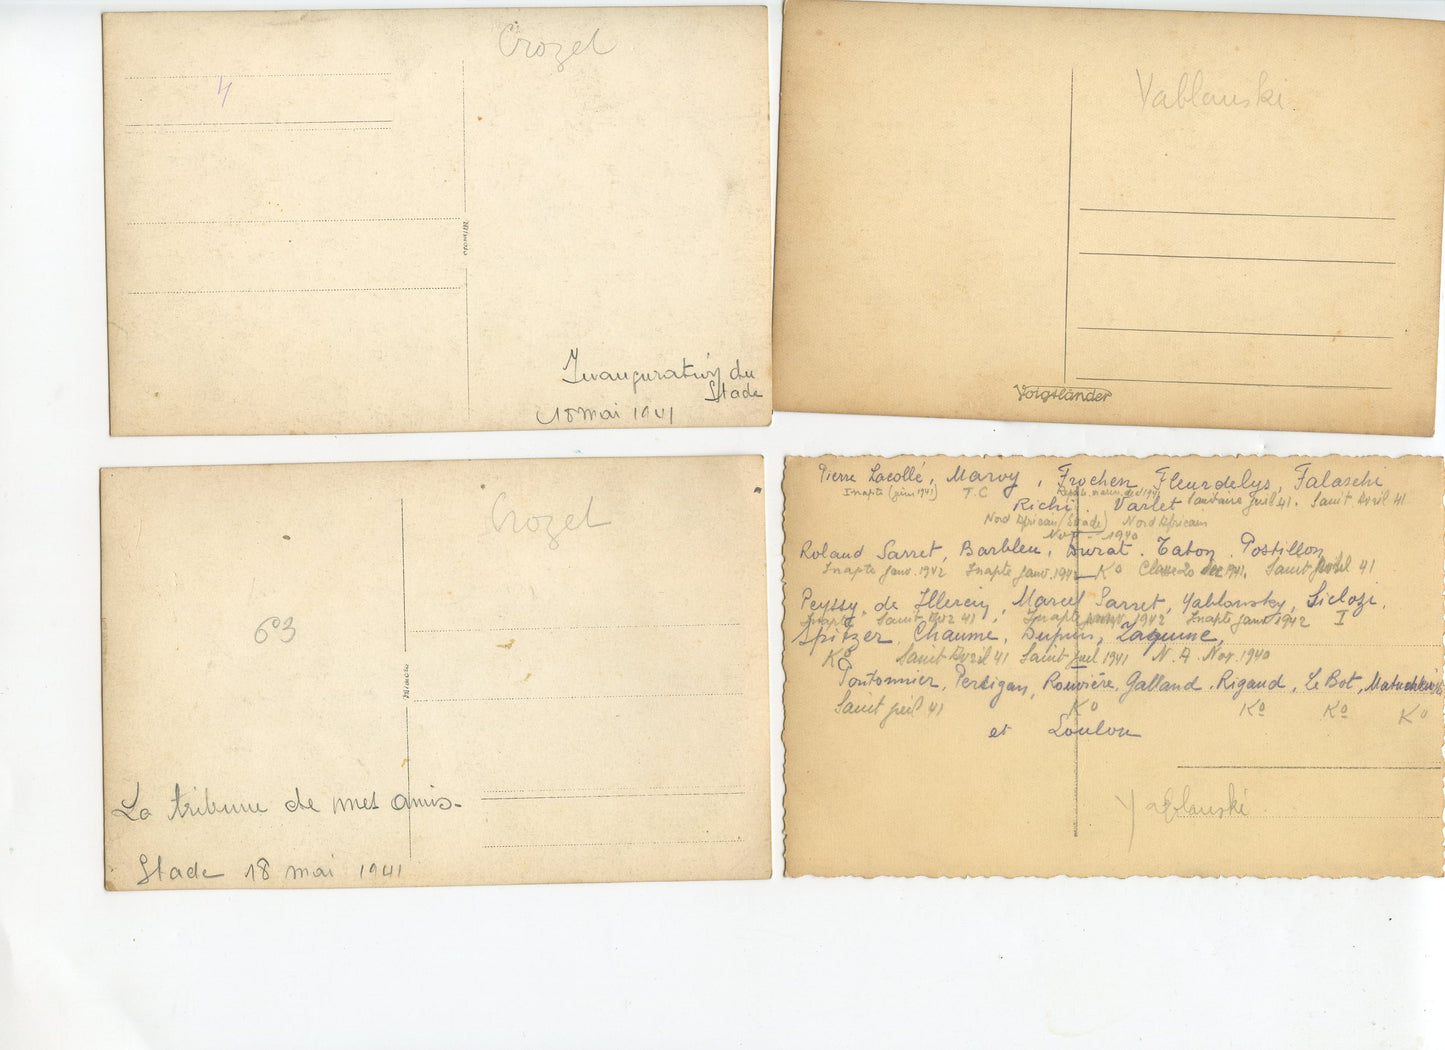 Crozet
4
Inauguration du
Stade
18 mai 1941
Yablanski
Voigtländer
Crozet
603
La tribune de mes amis-
Stade 18 mai 1941
Pierre Lacollé, Marvy, Frochen, Fleurdelys, Falaschi
Inapte (juin 1941) T.C Sanitaire juil 41. Sanit Avril 41
Richi Varlet
Nord Africain (Stade) Nord Africain
Nov. 1940
Roland Sarret, Barbleu, Durat. Tabon. Postillon
Inapte janv. 1942 Inapte janv. 1942 K° Classe 20 déc 1941. Sanit Avril 41
Peyssy, de Illerciy, Marcel Sarret, Yablonsky, Siclozi,
Inapte Sanit 41 Inapte 1942 Inapte janv 1942 I
Spitzer, Chaume, Dupuis, Laguine,
K° Sanit Avril 41 Sanit juil 1941 N.A Nov. 1940
Pontonnier, Perdigan, Rouvière, Galland, Rigaud, Le Bot,
Sanit juil 41 K° K° K° K°
et Loulou
Yablanski